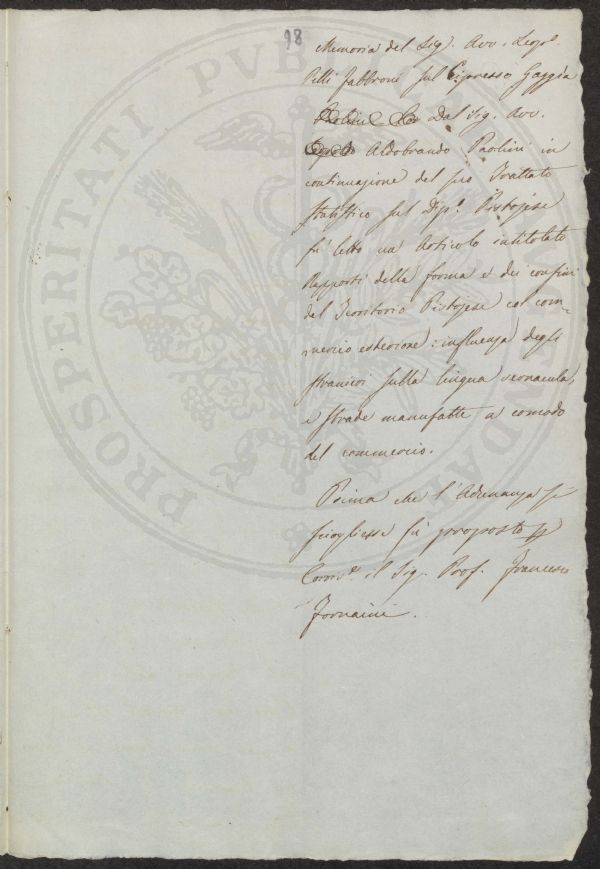 98
Memoria del Sig. Avv. Leop.
Pelli Fabbroni sul Cipresso Gaggía
Dal Sig. Avv.
Aldobrando Paolini in
continuazione del suo Trattato
statistico sul Dip. Pistojese
fù letto un Articolo intitolato
Rapporti della forma e dei confini
del Territorio Pistojese col com=
mercio esteriore: influenza degli
stranieri sulla lingua vernacula,
e strade manufatte a comodo
del commercio.
Prima che l'Adunanza si
sciogliesse fù proposto p
Corrisp.e il Sig. Prof. Francesco
Fornaini.
PROSPERITATI PVBLICAE AVGENDAE